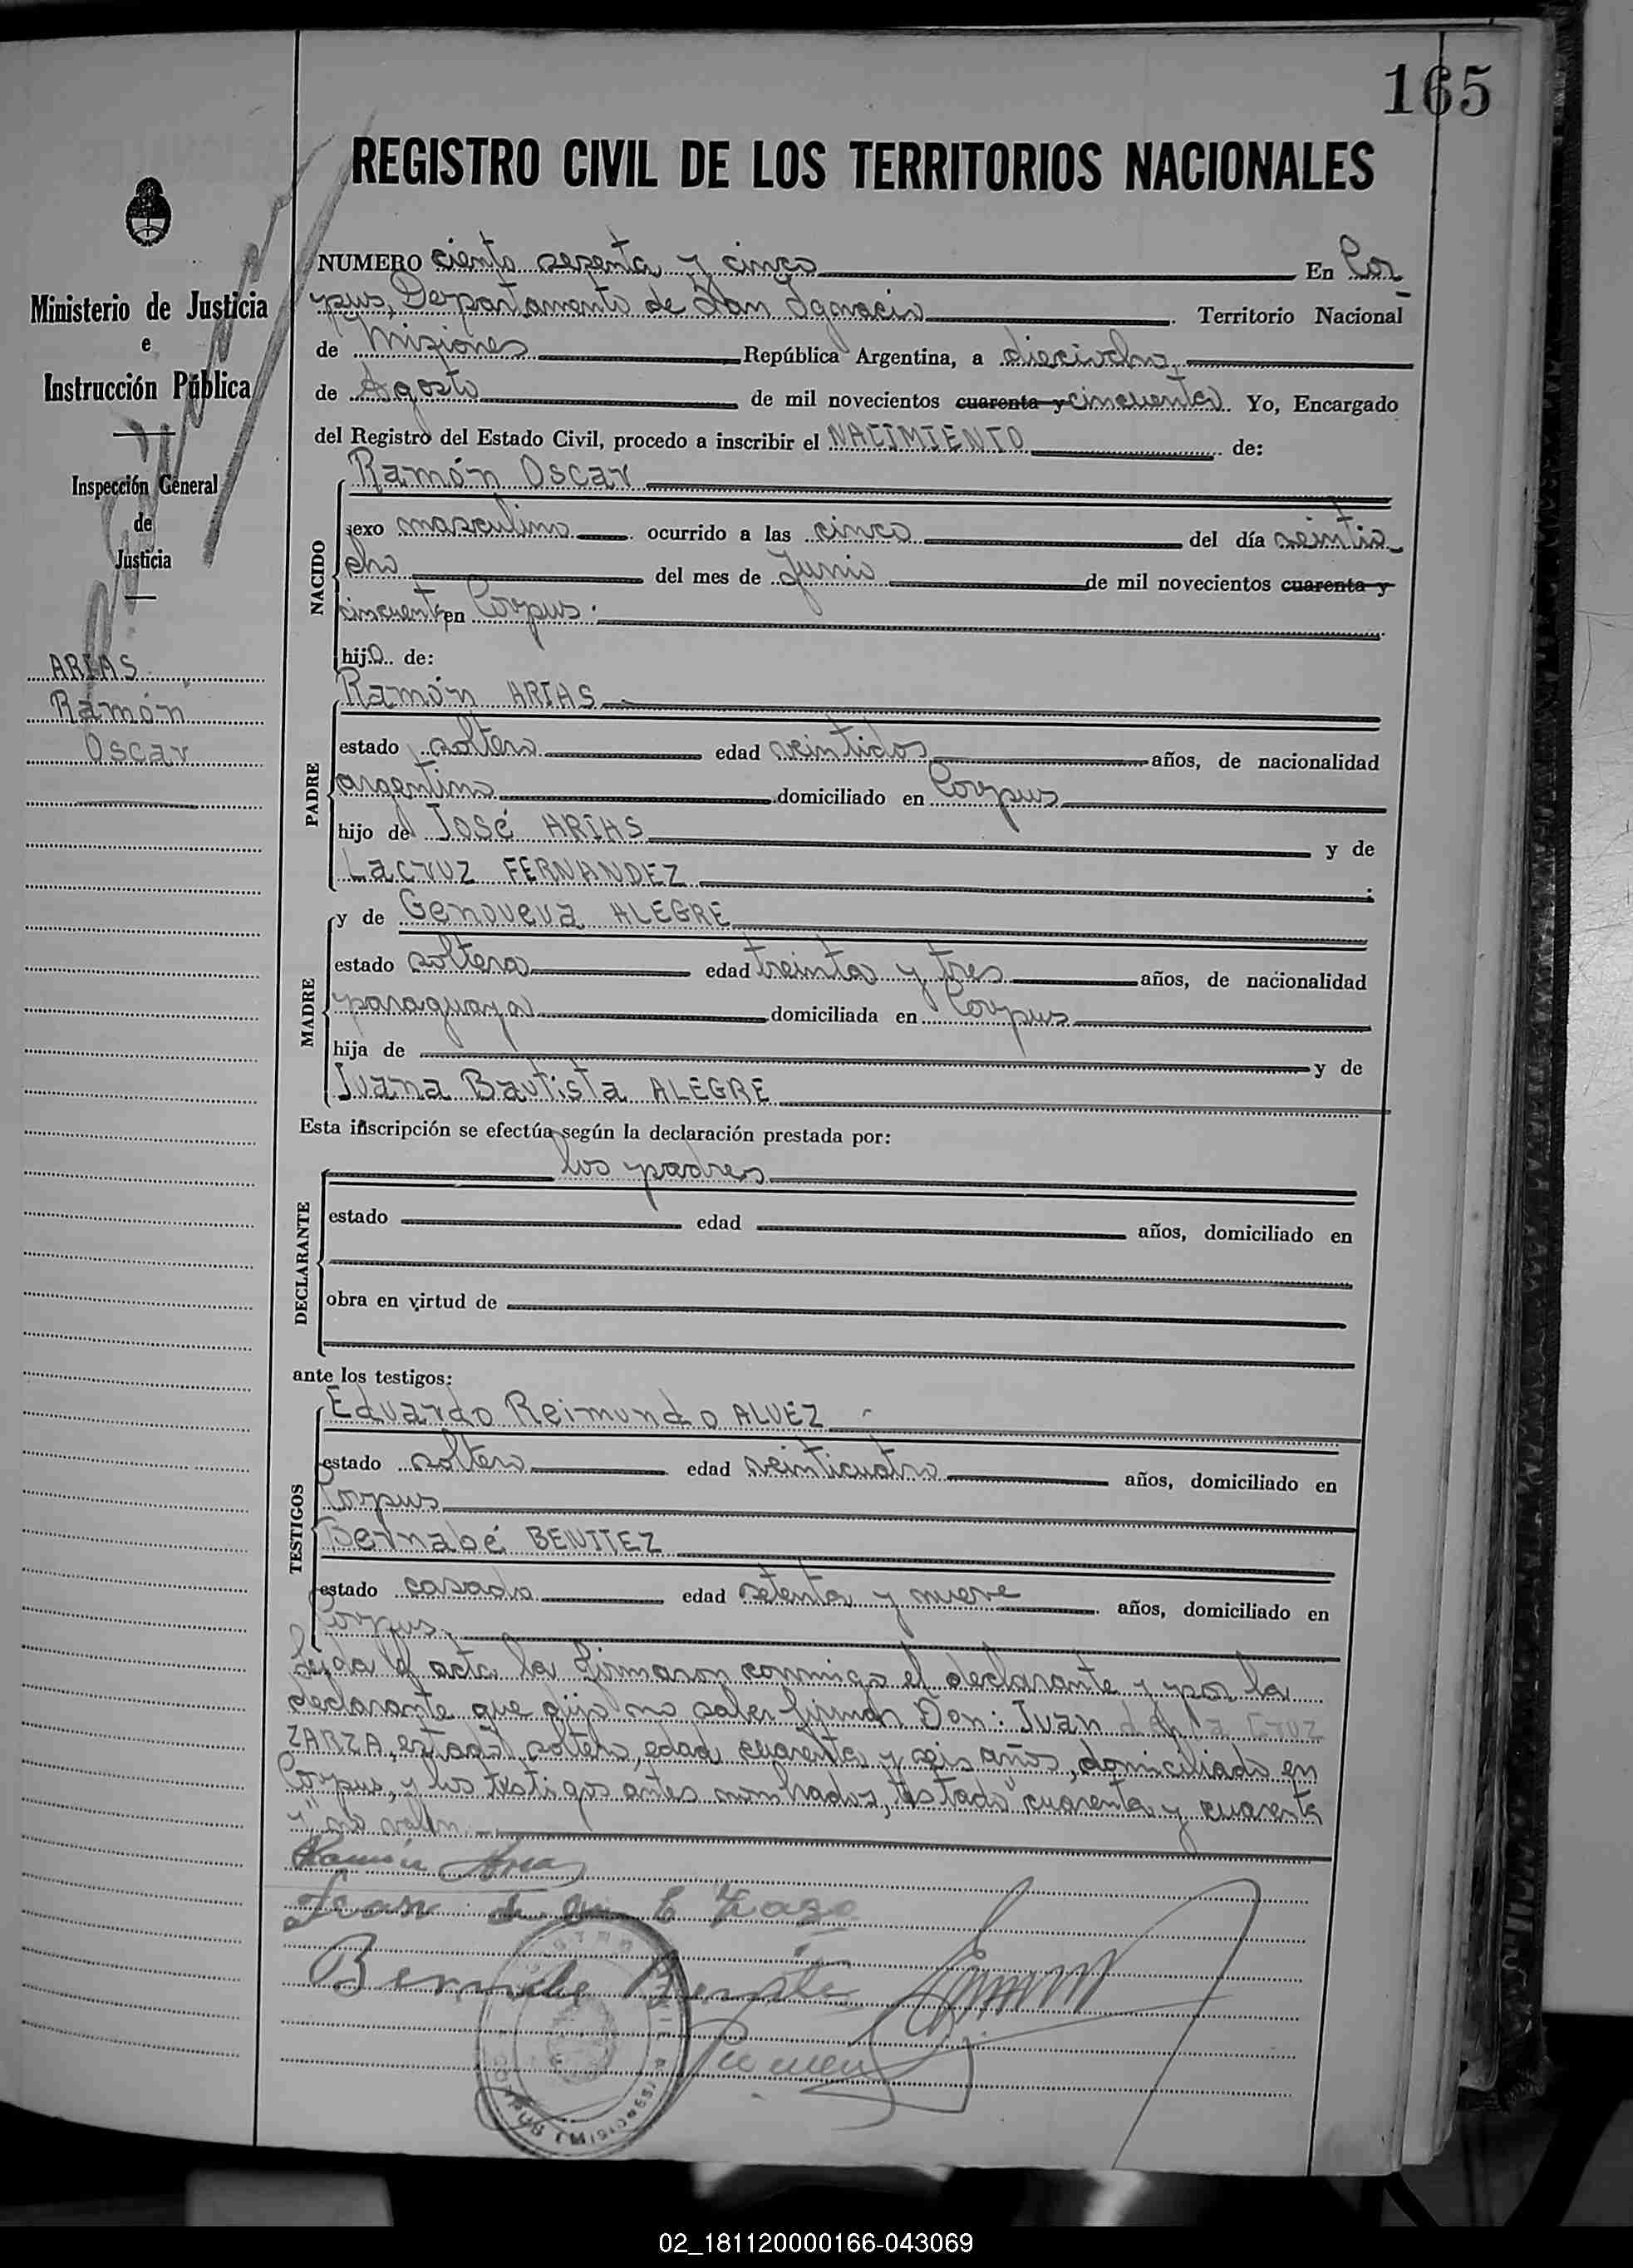 165
REGISTRO CIVIL DE LOS TERRITORIOS NACIONALES
Ministerio de Justicia
e
Instrucción Pública
Inspección General
de
Justicia
ARIAS
Ramón
Oscar
NUMERO ciento sesenta y cinco En Cor
pus, Departamento de San Ignacio. Territorio Nacional
de Misiones República Argentina, a dieciocho
de Agosto de mil novecientos cuarenta y cincuenta. Yo, Encargado
del Registro del Estado Civil, procedo a inscribir el NACIMIENTO de:
Ramón Oscar
NACIDO
sexo masculino ocurrido a las cinco del día veintio
cho del mes de Junio de mil novecientos cuarenta y
cincuenta en Corpus.
hijo de:
Ramón ARIAS
PADRE
estado soltero edad veintidos años, de nacionalidad
argentino domiciliado en Corpus
hijo de José ARIAS y de
Lacruz FERNANDEZ ;
y de Genoveva ALEGRE
MADRE
estado soltera edad treinta y tres años, de nacionalidad
paraguaya domiciliada en Corpus
hija de y de
Juana Bautista ALEGRE
Esta inscripción se efectúa según la declaración prestada por:
los padres
DECLARANTE
estado edad años, domiciliado en
obra en virtud de
ante los testigos:
Eduardo Reimundo ALVEZ
TESTIGOS
estado soltero edad veinticuatro años, domiciliado en
Corpus
Bernabé BENITEZ
estado casado edad setenta y nueve años, domiciliado en
Corpus.
Leída el acta la firmaron conmigo el declarante y por la
declarante que dijo no saber firmar Don: Juan de la Cruz
ZARZA, estado soltero, edad cuarenta y seis años, domiciliado en
Corpus, y los testigos antes nombrados, testado "cuarenta y cuarenta
y" no valen.
Ramón Arias
Juan de
Bernabe Benites
CORPUS (Misiones)
02_181120000166-043069